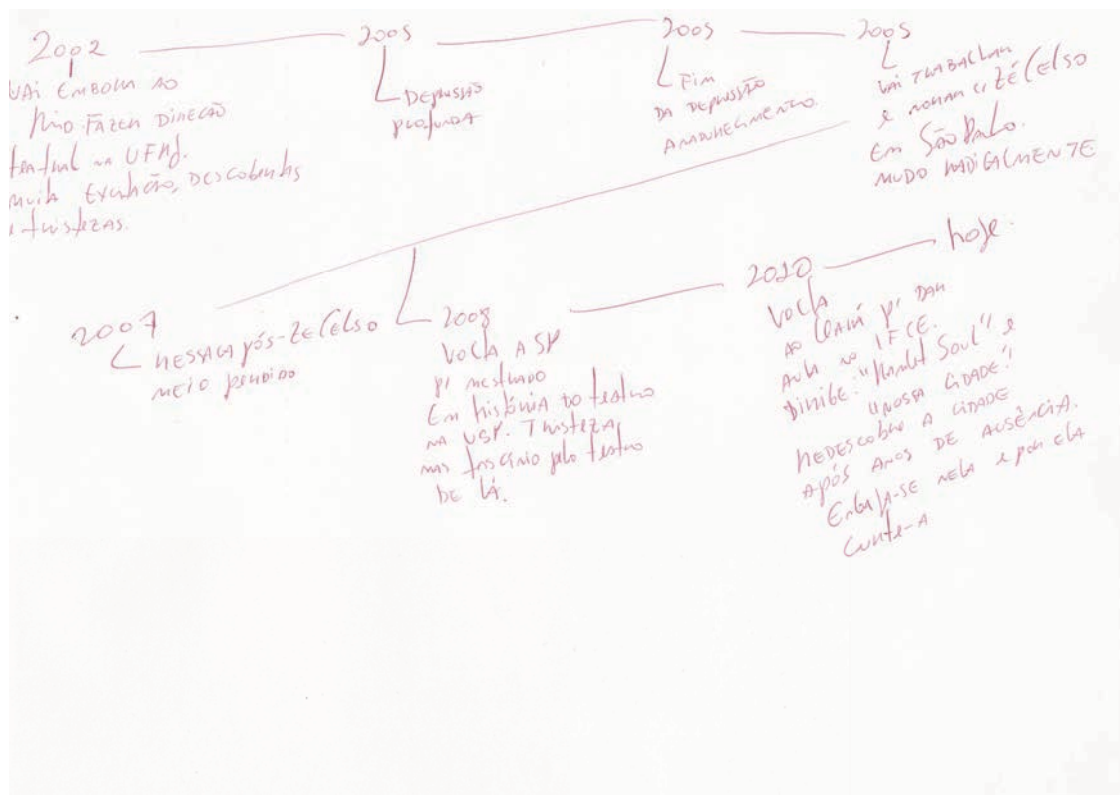 2002
VAI EMBORA AO
Rio. FAZER DIREÇÃO
teatral na UFRJ.
muita Excitação, DESCOBERTAS
e tristezas.
2005
DEPRESSÃO
profunda
2005
Fim
DA DEPRESSÃO
AMADURECIMENTO.
2005
VAI TRABALHAR
e morar c/ Zé Celso
Em São Paulo.
MUDO RADICALMENTE
2007
RESSACA pós-Zé Celso
MEIO PERDIDO
2008
VOLTA A SP
p/ mestrado
Em história do teatro
na USP. Tristeza,
mas fascínio pelo teatro
DE LÁ.
2010
VOLTA
AO CEARÁ p/ DAR
AULA no IFCE.
Dirige: "Hamlet Soul" e
"NOSSA CIDADE".
REDESCOBRE A CIDADE
APÓS ANOS DE AUSÊNCIA.
Engaja-SE nela e por ela
Curte-A
hoje.